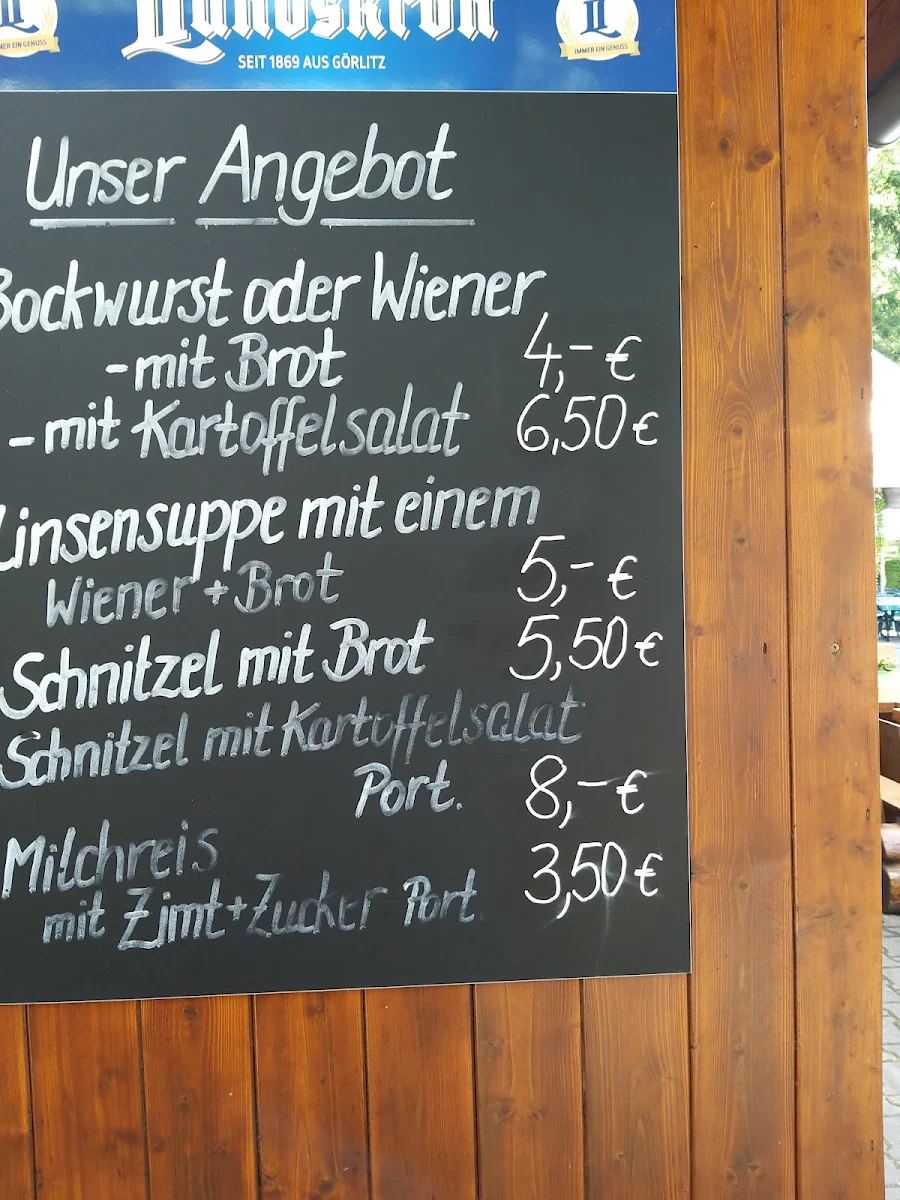 Landskron
SEIT 1869 AUS GÖRLITZ
IMMER EIN GENUSS
Unser Angebot
Bockwurst oder Wiener
- mit Brot 4,- €
- mit Kartoffelsalat 6,50 €
Linsensuppe mit einem
Wiener + Brot 5,- €
Schnitzel mit Brot 5,50 €
Schnitzel mit Kartoffelsalat
Port. 8,- €
Milchreis
mit Zimt + Zucker Port. 3,50 €